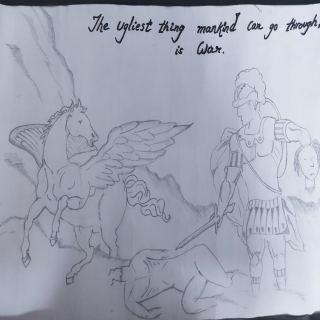 The ugliest thing mankind can go through,
is War.